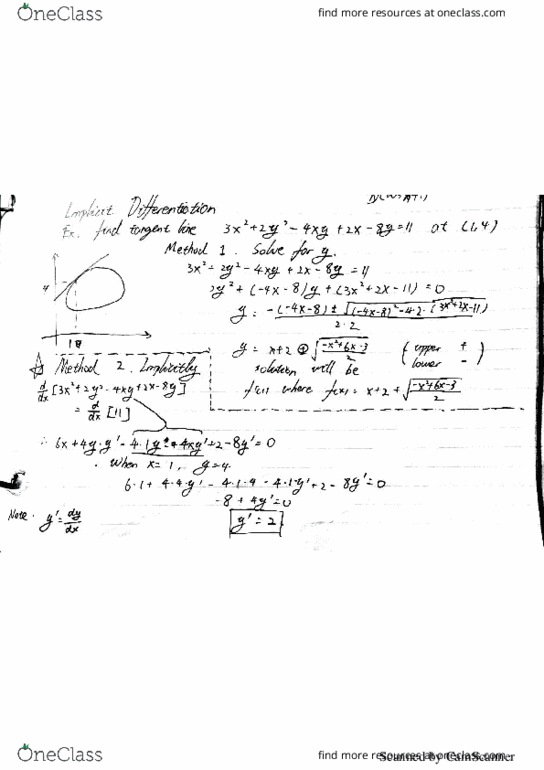 OneClass
find more resources at oneclass.com
Implicit Differentiation
Ex. find tangent line 3x²+2y²-4xy+2x-8y=11 at (1,4)
Method 1. Solve for y.
3x²-2y²-4xy+2x-8y=11
2y²+(-4x-8)y+(3x²+2x-11)=0
y = -(-4x-8) ± √((-4x-8)²-4·2·(3x²+2x-11)) / 2·2
y = x+2 ⊕ √((-x²+6x-3)/2) (upper + lower -)
solution will be
f(x) where f(x) = x+2+√((-x²+6x-3)/2)
4
1
Method 2. Implicitly
d/dx [3x²+2y²-4xy+2x-8y]
= d/dx [11]
∴ 6x+4y·y'-4·1y-4xy'+2-8y'=0
When x=1, y=4.
6·1+4·4·y'-4·1·4-4·1·y'+2-8y'=0
-8+4y'=0
Note. y'=dy/dx
y'=2
OneClass
find more resources at oneclass.com
Scanned by CamScanner